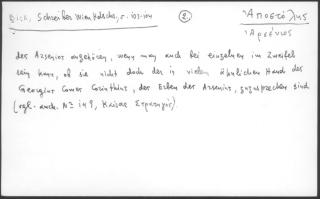 Dick, Schreiber Mionikolscher, S. 103-104 ② Ἀποστόλης
Ἀρσένιος
des Arsenios angehören, wenn man auch bei einzelnen im Zweifel
sein kann, ob sie nicht doch der in vielen ähnlichen Hand des
Georgius Comes Corinthius, des Erben des Arsenios, zuzusprechen sind
(vgl. auch Nº 149, Kaisar Στρατηγός).